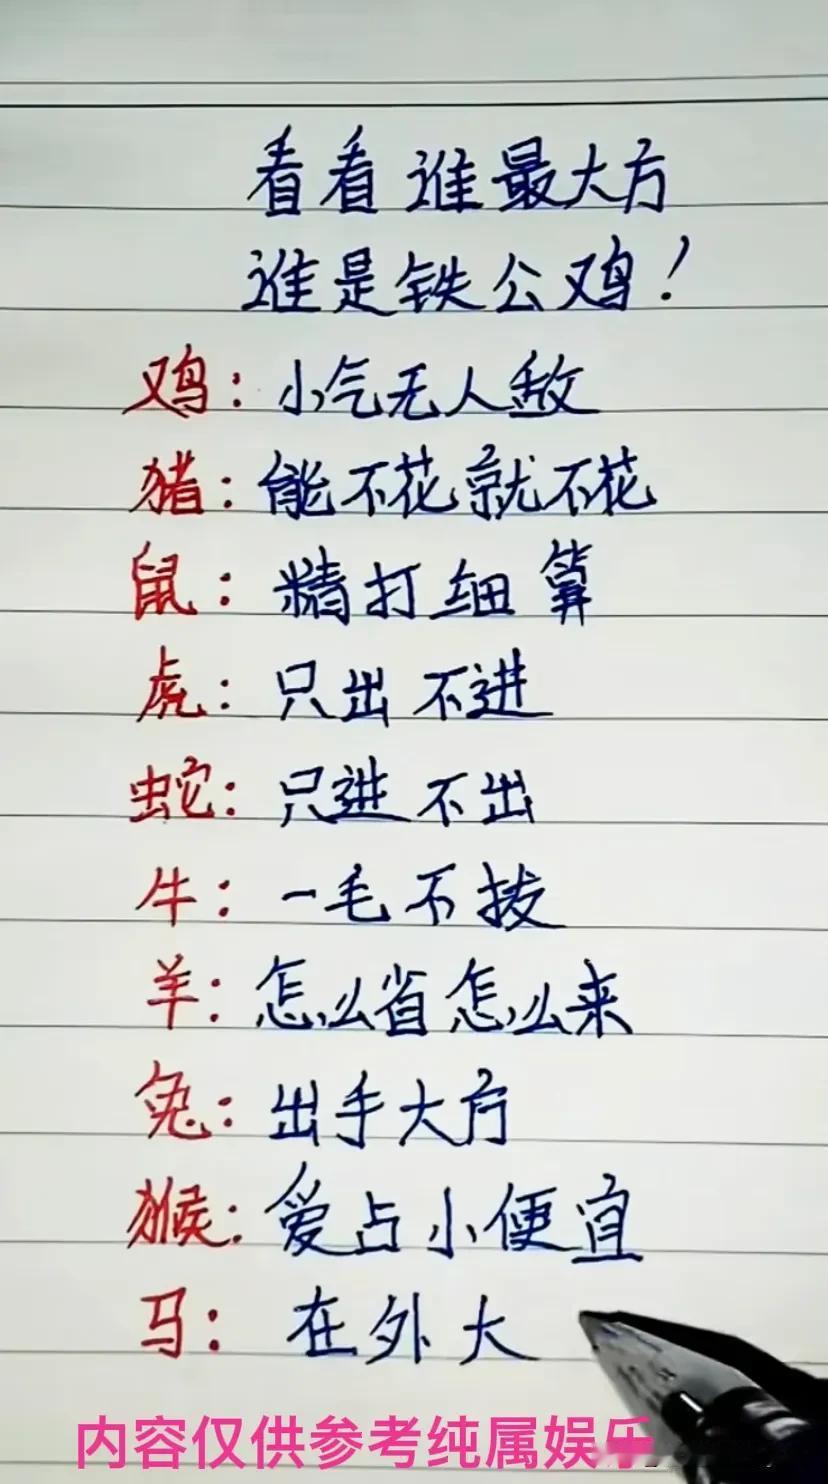 看看谁最大方
谁是铁公鸡！
鸡：小气无人敌
猪：能不花就不花
鼠：精打细算
虎：只出不进
蛇：只进不出
牛：一毛不拔
羊：怎么省怎么来
兔：出手大方
猴：爱占小便宜
马：在外大
内容仅供参考纯属娱乐